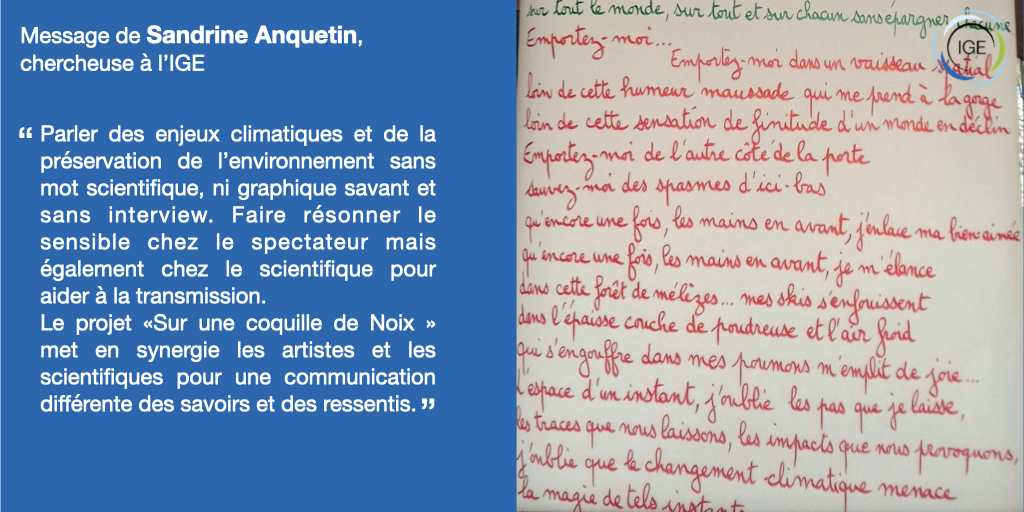 Message de Sandrine Anquetin,
chercheuse à l'IGE
“ Parler des enjeux climatiques et de la
préservation de l'environnement sans
mot scientifique, ni graphique savant et
sans interview. Faire résonner le
sensible chez le spectateur mais
également chez le scientifique pour
aider à la transmission.
Le projet «Sur une coquille de Noix »
met en synergie les artistes et les
scientifiques pour une communication
différente des savoirs et des ressentis. ”
sur tout le monde, sur tout et sur chacun sans épargner chacune
IGE
Emportez-moi...
Emportez-moi dans un vaisseau spatial
loin de cette humeur maussade qui me prend à la gorge
loin de cette sensation de finitude d'un monde en déclin
Emportez-moi de l'autre côté de la porte
sauvez-moi des spasmes d'ici-bas
qu'encore une fois, les mains en avant, j'enlace ma bien-aimée
qu'encore une fois, les mains en avant, je m'élance
dans cette forêt de mélèzes... mes skis s'enfouissent
dans l'épaisse couche de poudreuse et l'air froid
qui s'engouffre dans mes poumons m'emplit de joie...
l'espace d'un instant, j'oublie les pas que je laisse,
les traces que nous laissons, les impacts que nous provoquons,
j'oublie que le changement climatique menace
la magie de tels instants